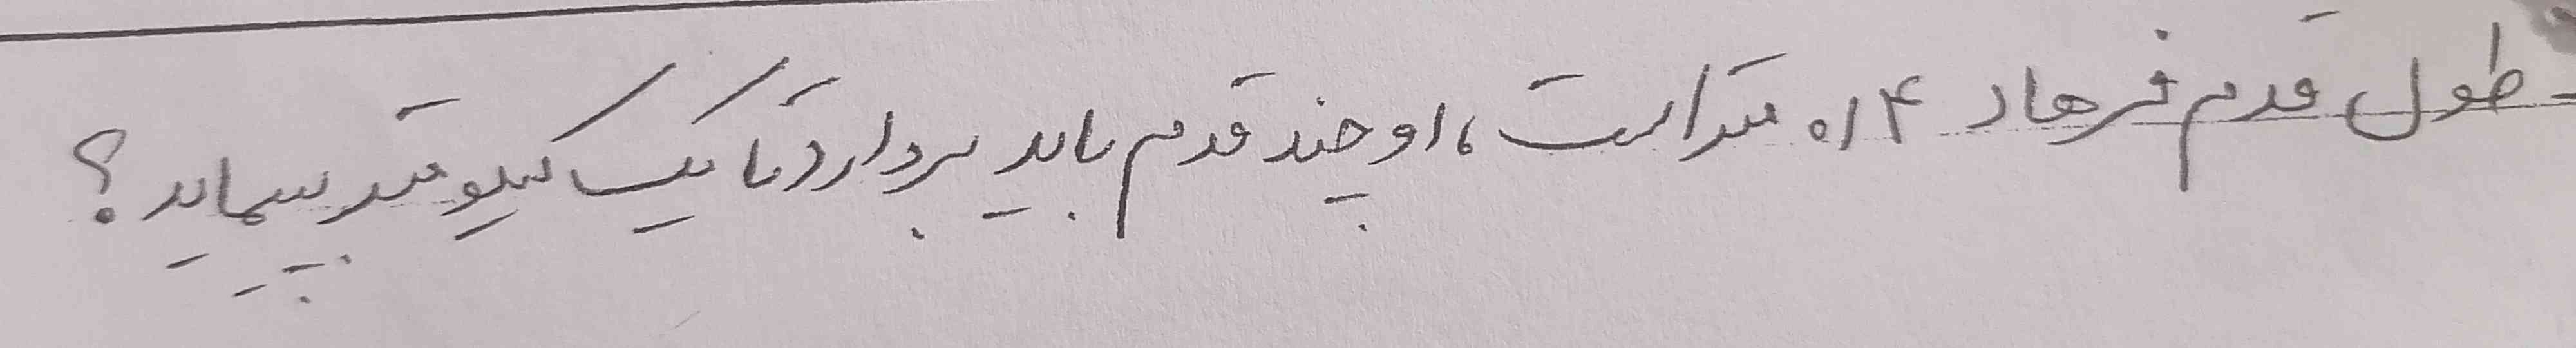 طول قدم فرهاد ۰/۴ متر است، او چند قدم باید بردارد تا یک کیلومتر بپیماید؟